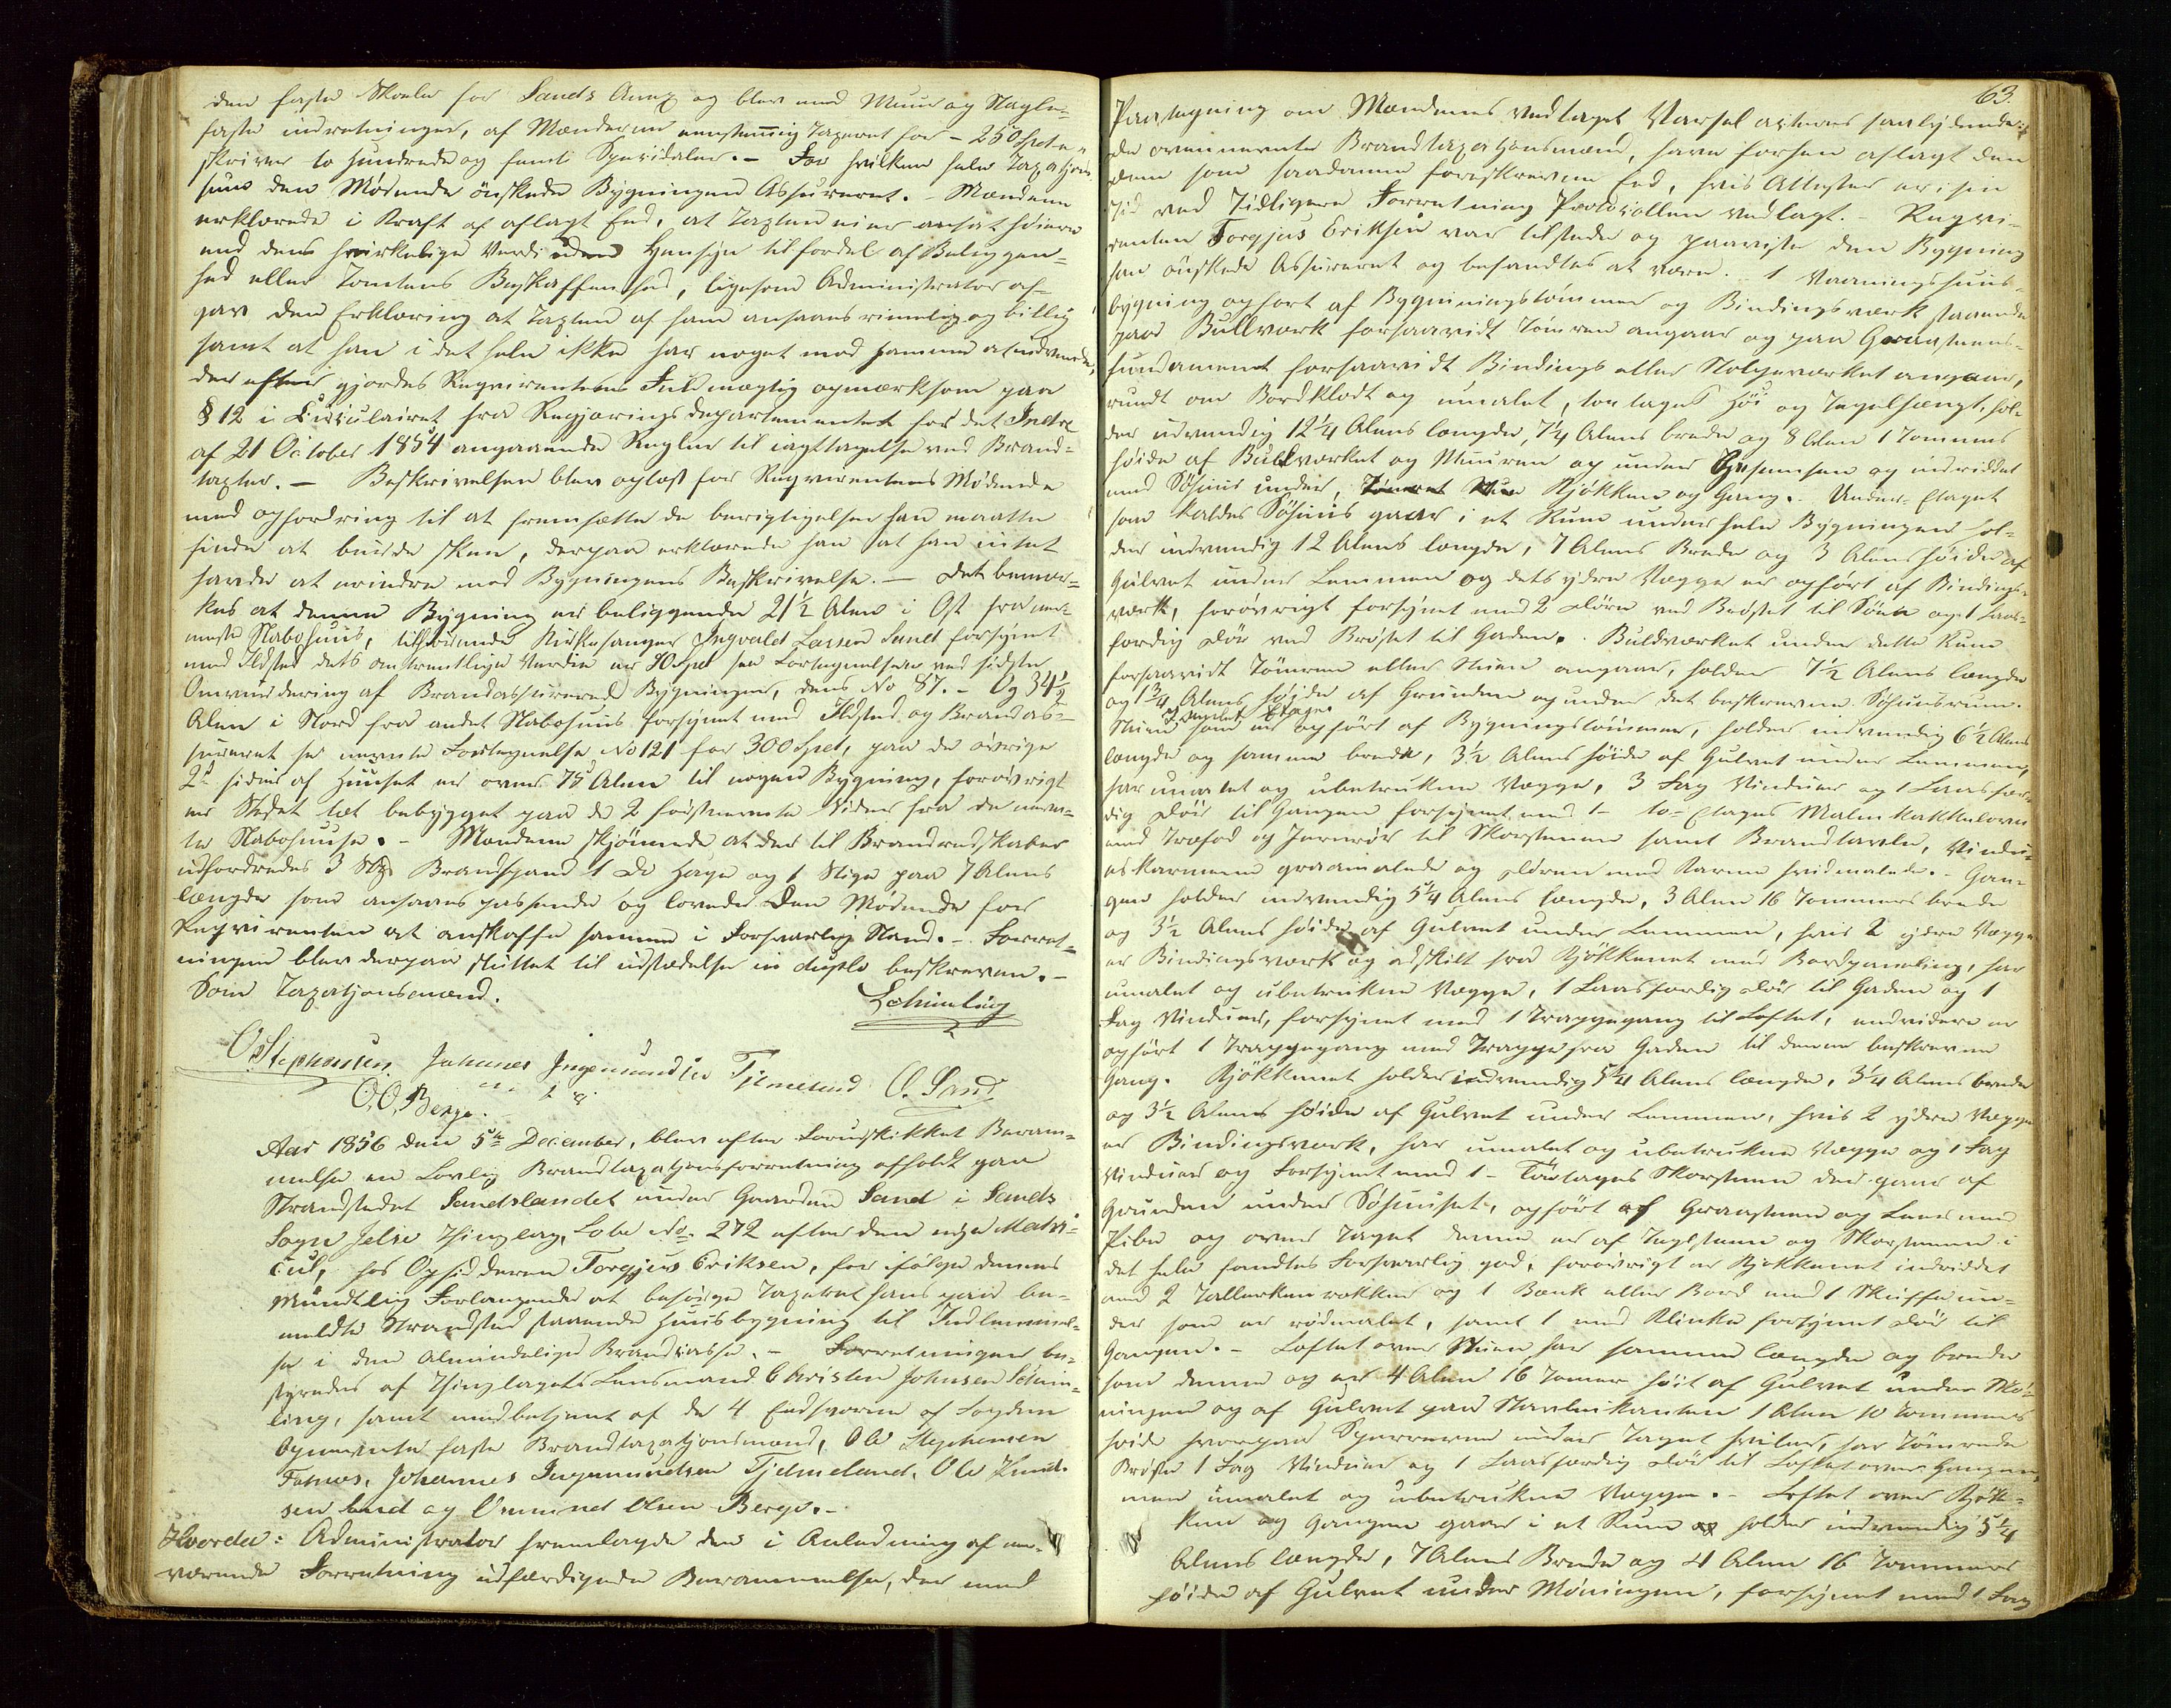 den faste Skole for Sands Annex og blev med Muur og Nagle-
faste indretninger, af Mænderne eenstemmig Taxeret for - 250 Spd
skriver to hundrede og femti Speciedaler. - For hvilken hele Taxations
sum den Mødende ønskede Bygningen Assureret. - Mændene
erklærede i Kraft af aflagt Eed, at Taxten ei er ansat høiere
end dens virkelige Værdi uden Hensyn til fordel af Beliggen-
hed eller Tomtens Beskaffenhed, ligesom Administrator af-
gav den Erklæring at Taxten af ham ansaaes rimelig og billig
samt at han i det hele ikke har noget mod samme at indvende,
derefter gjordes Reqvirentens Fuldmægtig opmærksom paa
§ 12 i Circulairet fra Regjerings departementet for det Indre
af 21 October 1854 angaaende Regler til iagttagelse ved Brand-
taxter. - Beskrivelsen blev oplæst for Reqvirentens Mødende
med opfordring til at fremsætte de berigtigelser han maatte
finde at burde skee, derpaa erklærede han at han intet
havde at erindre mod Bygningens Beskrivelse. - Det bemær-
kes at denne Bygning er beliggende 21½ Alen i Øst fra nær-
meste Nabohuus, tilhørende Kirkesanger Ingvald Larsen Sand forsynt
med Ildsted dets omtrentlige Værdie er 90 Spd se Fortegnelsen ved sidste
Omvurdering af Brandassurerede Bygninger, dens No 87. - Og 34½
Alen i Nord fra andet Nabohuus forsynet med Ildsted og Brandas-
sureret se nævnte Fortegnelse No 121 for 300 Spd, paa de øvrige
2de sider af Huuset er over 75 Alen til nogen Bygning, forøvrigt
er Stedet tæt bebygget paa de 2 førstnævnte Sider fra de nævn-
te Nabohuuse. - Mændene skjønnede at der til Brandredskaber
udfordredes 3 Brandspand 1 Do Hage og 1 Stige paa 7 Alens
længde som ansaaes passende og lovede Den Mødende for
Reqvirenten at anskaffe samme i Forsvarlig Stand. - Forret-
ningen blev derpaa sluttet til udstædelse in duplo beskreven. -
Som Taxationsmænd. Schimling
O Stephensen Johannes Ingemundsen Tjemeland O. Sand
O. O. Berge.
Aar 1856 den 5te December, blev efter Forudskikket Beram-
melse en Lovlig Brandtaxationsforretning afholdt paa
Strandstedet Sandslandet under Gaarden Sand i Sands
Sogn Jelse Thinglag, Løbe No. 272 efter den nye Matri-
cul, hos Opsidderen Torgjus Eriksen, for ifølge dennes
Mundtlig Forlangende at besørge Taxeret hans paa be-
meldte Strandsted staaende Huusbygning til Indlemmel-
se i den Almindelige Brandcasse. - Forretningen be-
styredes af Thinglagets Lensmand Christen Johnsen Schim-
ling, samt medbetjent af de 4 Eedsvorne af Fogden
Opnævnte faste Brandtaxationsmænd, Ole Stephensen
Johannes Ingemundsen Tjelmeland, Ole
sen Sand og Ommund Olsen Berge. -
Hvorda: Administrator fremlagde den i Anledning af nær-
værende Forretning udfærdigede Berammelse, der med
63.
Paategning om Mændenes Vedtaget Varsel acteres saalydende:
de ovennævnte Brandtaxationsmænd, have forhen aflagt den
dem som saadanne foreskrevne Eed, hvis Attester er i sin
Tid ved Tidligere Forretning Protocollen vedlagt. - Reqvi-
renten Torgjus Eriksen var tilstede og paaviste den Bygning
han ønskede Assureret og befandtes at være. - 1 Vaaningshuus-
bygning opført af Bygningstømmer og Bindingsværk staaende
paa Bullværk forsaavidt Tømren angaar og paa Graasteens-
fundament forsaavidt Bindings eller Stolpeværket angaar,
rundt om Bordklædt og umalet, to etages Høi og Tegelhængt, hol-
der udvendig 12¼ Alens længde, 7¼ Alens brede og 8 Alen 1 Tommes
høide af Bullværket og Muuren op under Gesimsen og indreddet
med Søhuus under, Kjøkken og Gang. Under-Etagen
som kaldes Søhuus gaar i et Rum under hele Bygningen hol-
der indvendig 12 Alens længde, 7 Alens Brede og 3 Alens høide af
Gulvet under Lemmen og dets ydre Vægge er opført af Bindings-
værk, forøvrigt forsynet med 2 Døre ved Brøstet til Søen og 1 Laas-
færdig Dør ved Brøstet til Gaden. Buldværket under dette Rum
forsaavidt Tømren eller Stuen angaar, holder 7½ Alens længde
og 1¾ Alens høide af Grunden op under det beskrevne Søhuusrum.
2 Etage
Stuen som er opført af Bygningstømmer, holder indvendig 6½ Alens
længde og samme brede, 3½ Alens høide af Gulvet under Lemmen,
har umalet og ubetrukne Vægge, 3 Fag Vinduer og 1 Laasfær-
dig Dør til Gangen forsynet med 1 to-Etages Malm Kakkelovn
med Træfod og Jernrør til Skorstenen samt Brandtavle, Vindu-
eskarmene graamalede og Døren med Karme hvidmalede. - Gan-
gen holder indvendig 5¼ Alens længde, 3 Alen 16 Tommers brede
og 3½ Alens høide af Gulvet under Lemmen, hvis 2 ydre Vægge
er Bindingsværk og adskilt fra Kjøkkenet med Bordpaneling, har
umalet og ubetrukne Vægge, 1 Laasfærdig Dør til Gaden og 1
Fag Vinduer, forsynet med 1 Trappegang til Loftet, endvidere er
opført 1 Trappegang med Trappe fra Gaden til denne beskrevne
Gang. Kjøkkenet holder indvendig 5¼ Alens længde, 3¼ Alens brede
og 3½ Alens høide af Gulvet under Lemmen, hvis 2 ydre Vægge
er Bindingsværk, har umalet og ubetrukne Vægge og 1 Fag
Vinduer og Forsynet med 1 - Toetages Skorsten der gaar af
Grunden under Søhuuset, opført af Graasteen og Leer med
Pibe og over Taget denne er af Teglsteen og Skorstenen i
det hele fandtes Forsvarlig god, forøvrigt er Kjøkkenet indreddet
med 2 Tallerkenrækker og 1 Bænk eller Bord med 1 Skuffe un-
der som er rødmalet, samt 1 med Klinke forsynet Dør til
Gangen. - Loftet over Stuen har samme længde og brede
som denne og er 4 Alen 16 Tomer høit af Gulvet under Mø-
ningen og af Gulvet paa Stavleiekanten 1 Alen 10 Tommers
høide hvorpaa Sperrerne under Taget hviler, har Tømrede
Brøste 1 Fag Vinduer og 1 Laasfærdig Dør til Loftet over Gangen,
men umalet og ubetrukne Vægge. - Loftet over Kjøk-
ken og Gangen gaar i et Rum holder indvendig 5¼
Alens længde, 7 Alens Brede og 4 Alen 16 Tommers
høide af Gulvet under Møningen, forsynet med 1 Fag